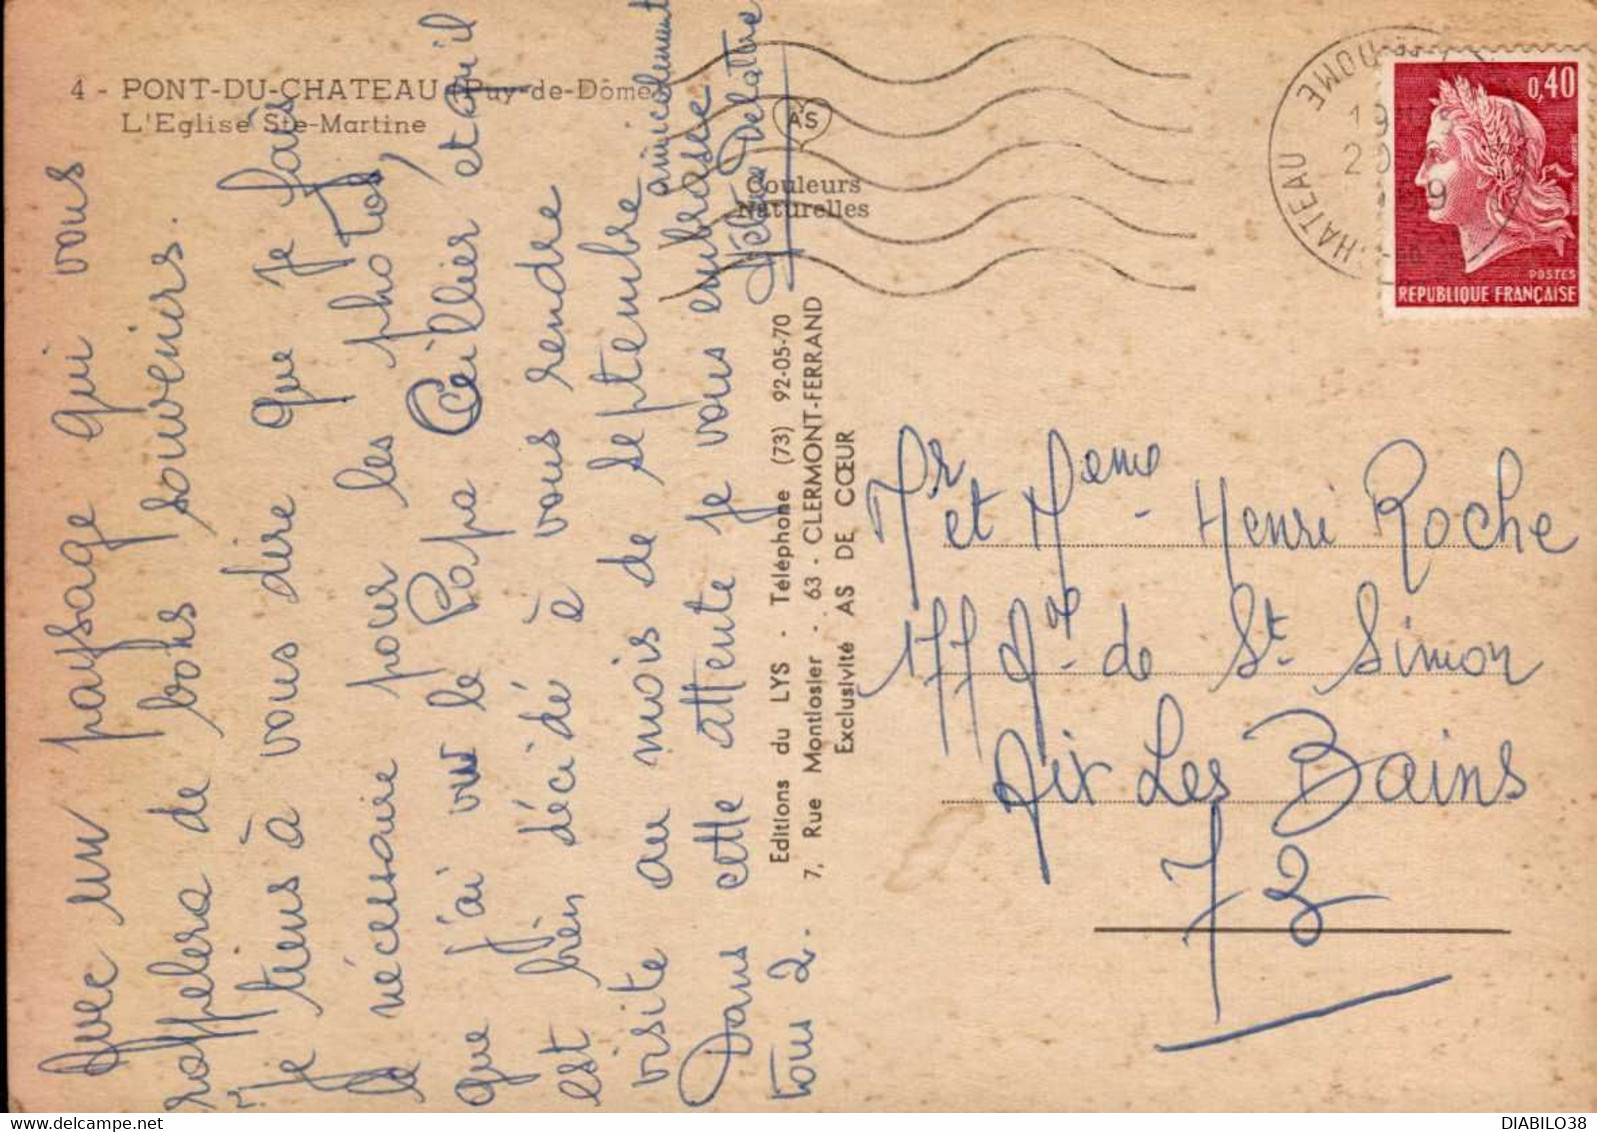 4 - PONT-DU-CHATEAU (Puy-de-Dôme)
L'Eglise Ste-Martine
Avec un paysage qui vous
rappelera de bons souvenirs.
je tiens à vous dire que je fais
le nécessaire pour les photos,
que j'ai vu le Papa Ceillier et qu'il
est bien décidé à vous rendre
visite au mois de septembre
Dans cette attente je vous embrasse
tous 2.
amicalement
Hélène Delattre
AS
Couleurs
Naturelles
Editions du LYS - Téléphone (73) 92-05-70
7, Rue Montlosier - 63 - CLERMONT-FERRAND
Exclusivité AS DE CŒUR
HATEAU
DOME
19
20
9
0,40
POSTES
REPUBLIQUE FRANÇAISE
Mr et Mame Henri Roche
177 Rte de St Simon
Aix Les Bains
73
DIABILO38